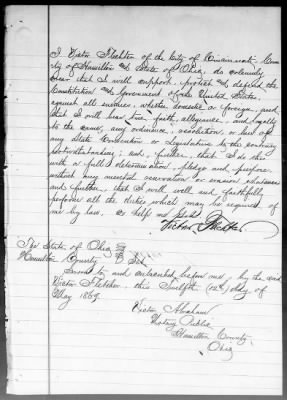 I Victor Fletcher of the City of Cincinnati Coun-
ty of Hamilton and State of Ohio, do solemnly
swear that I will support, protect and defend the
Constitution and Government of the United States,
against all enemies, whether domestic or foreign, and
that I will bear true faith, allegiance, and loyalty
to the same, any ordinance, resolution or law of
any State Convention or Legislature to the contrary
notwithstanding; and, further, that I do this
with a full determination, pledge and purpose,
without any mental reservation or evasion whatsoever
and further, that I will well and faithfully
perform all the duties which may be required of
me by law, so help me God
Victor Fletcher
The State of Ohio
Hamilton County
Sworn to and subscribed before me, by the said
Victor Fletcher, this Twelfth (12th) day of
May 1869.
Victor Abraham
Notary Public,
Hamilton County
Ohio